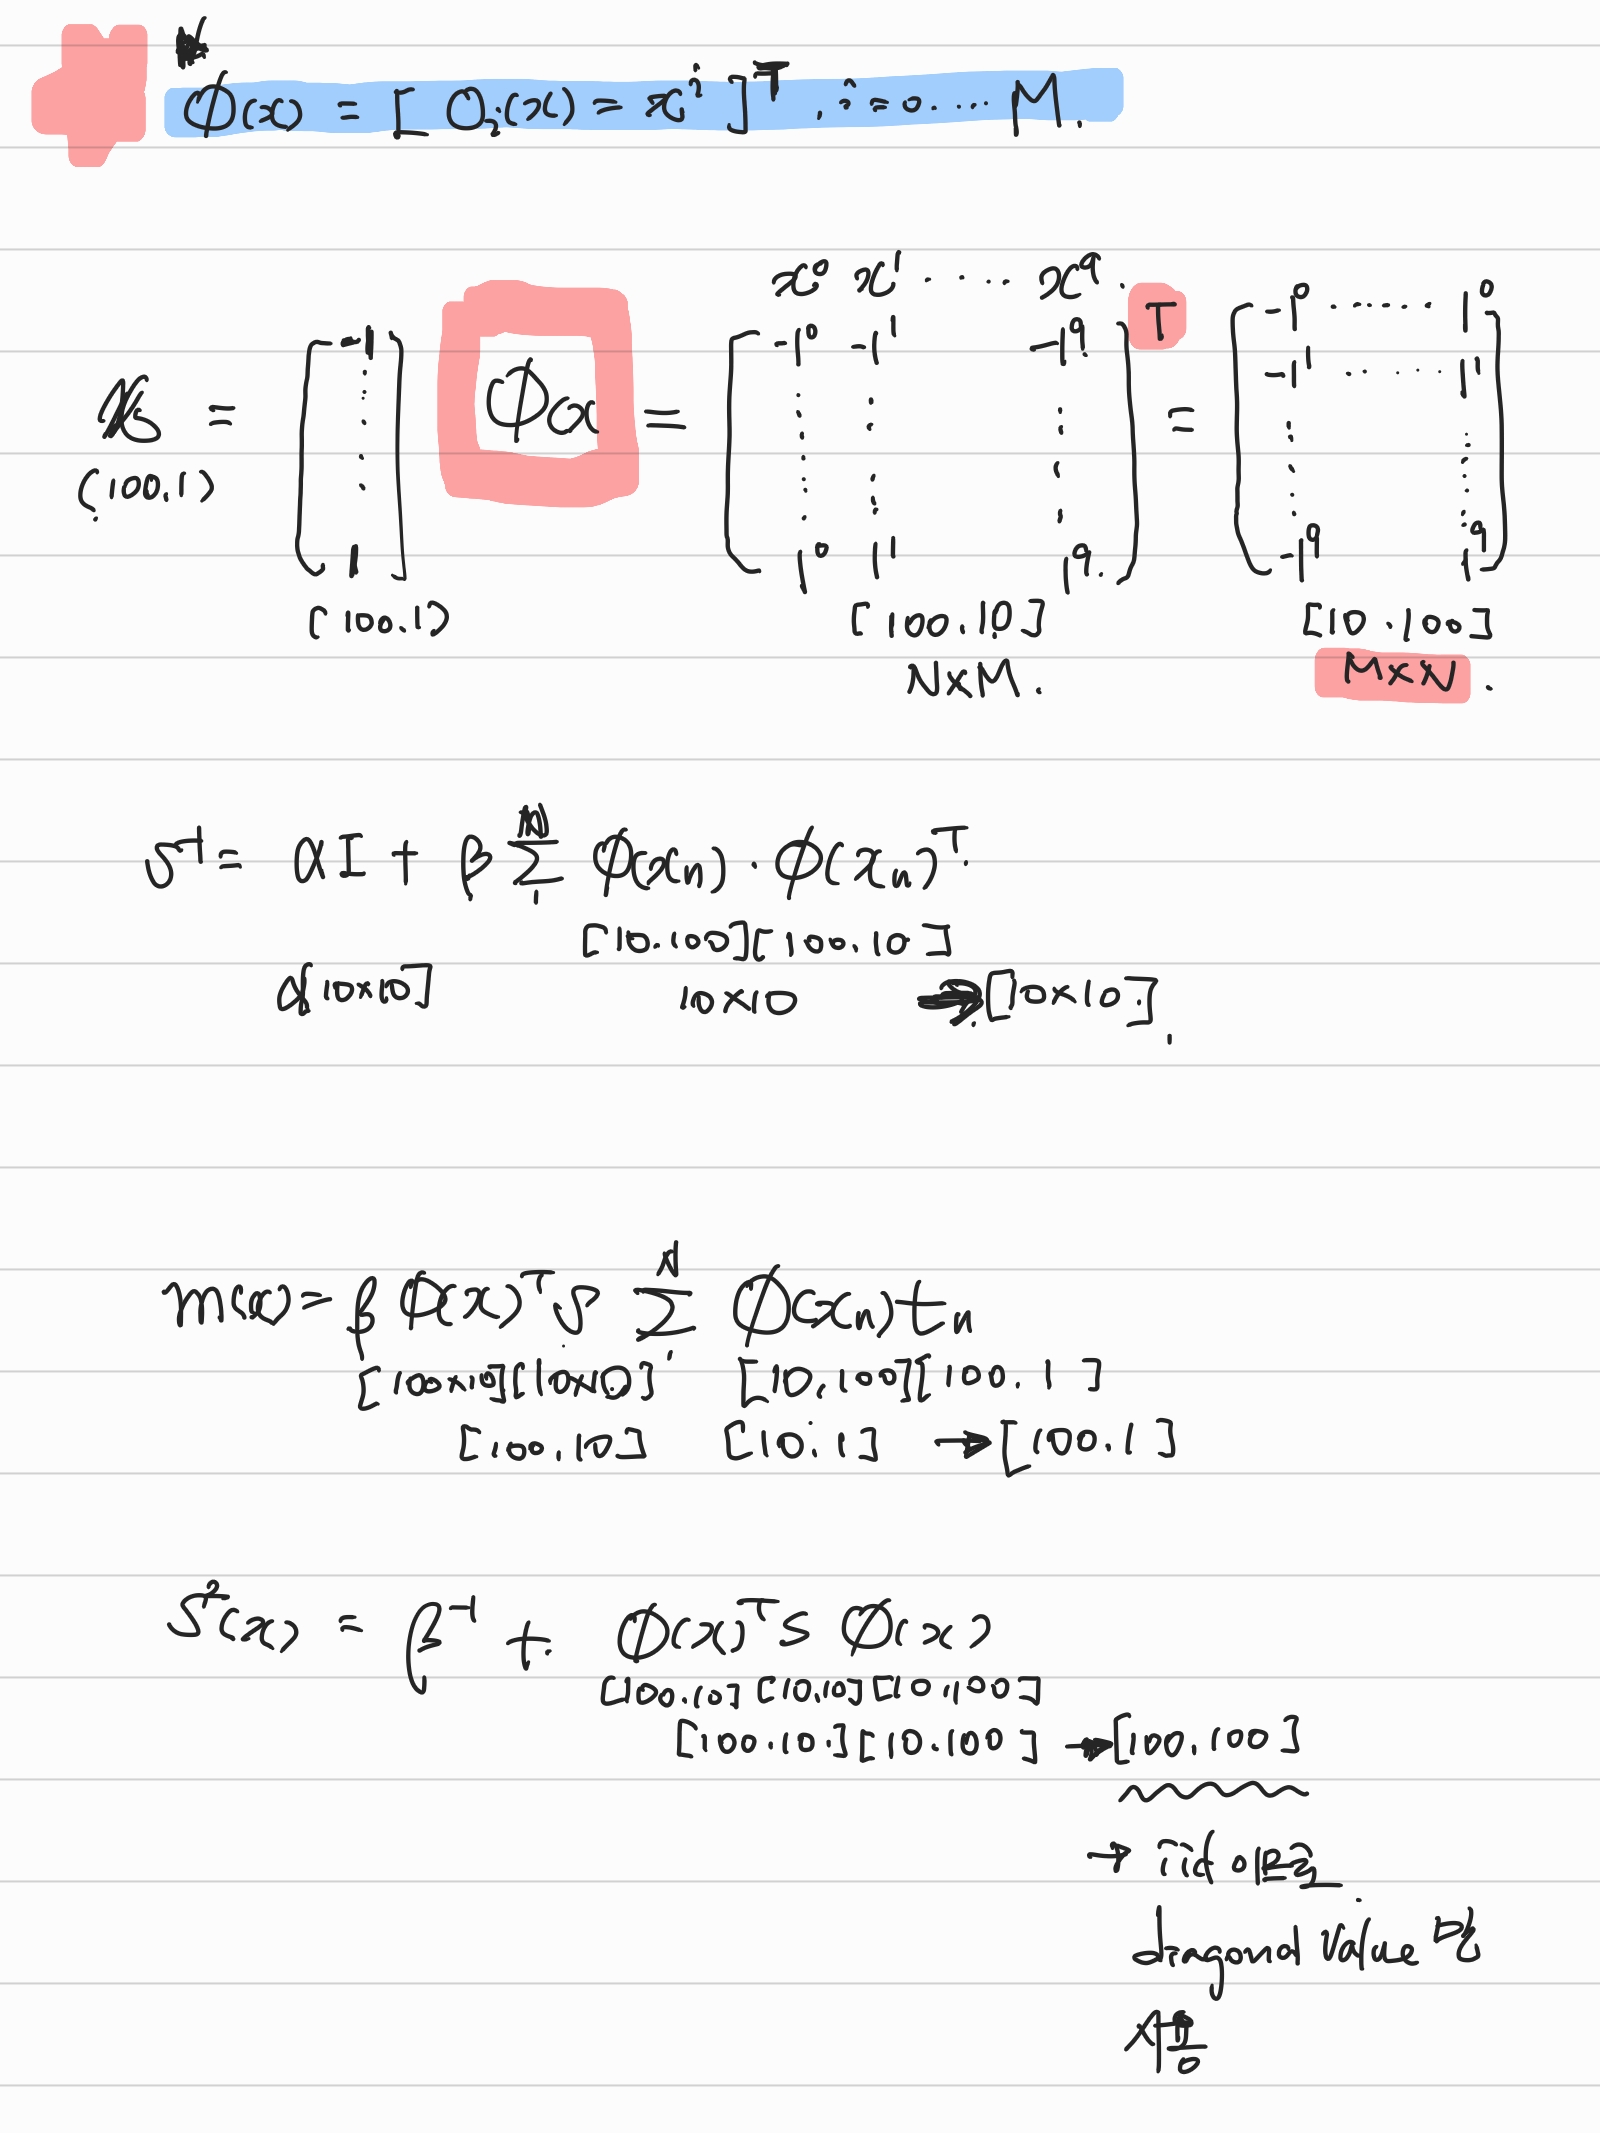 Φ(x) = [ Oᵢ(x) = xⁱ ]ᵀ , i = 0. ... M.
x⁰ x¹ ..... x⁹.
= [ -1 ..... 1 ] Φ(x = [ -1⁰ -1¹ -1⁹. ... 1⁰ 1¹ 1⁹. ]ᵀ = [ -1⁰ ..... 1⁰ -1¹ ..... 1¹ ... -1⁹ 1⁹ ]
(100.1)
(100.1) [100.10] [10.100]
N×M. M×N.
S⁻¹ = αI + β Σ₁ᴺ ϕ(xₙ) · ϕ(xₙ)ᵀ.
[10.100][100.10]
α[10×10] 10×10 → [10×10].
m(x) = β ϕ(x)ᵀ S Σ₁ᴺ ϕ(xₙ) tₙ
[100×10][10×10] [10,100][100.1]
[100.10] [10.1] → [100.1]
S²(x) = β⁻¹ + ϕ(x)ᵀ S ϕ(x)
[100.10] [10.10] [10,100]
[100.10.][10.100] → [100.100]
→ iid 이므로.
diagonal value 만
사용